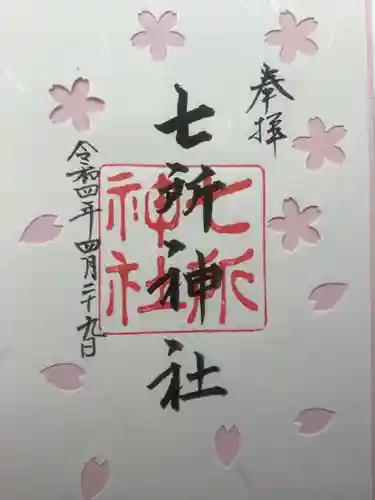 奉拝
七所神社
七所
神社
令和四年四月二十九日